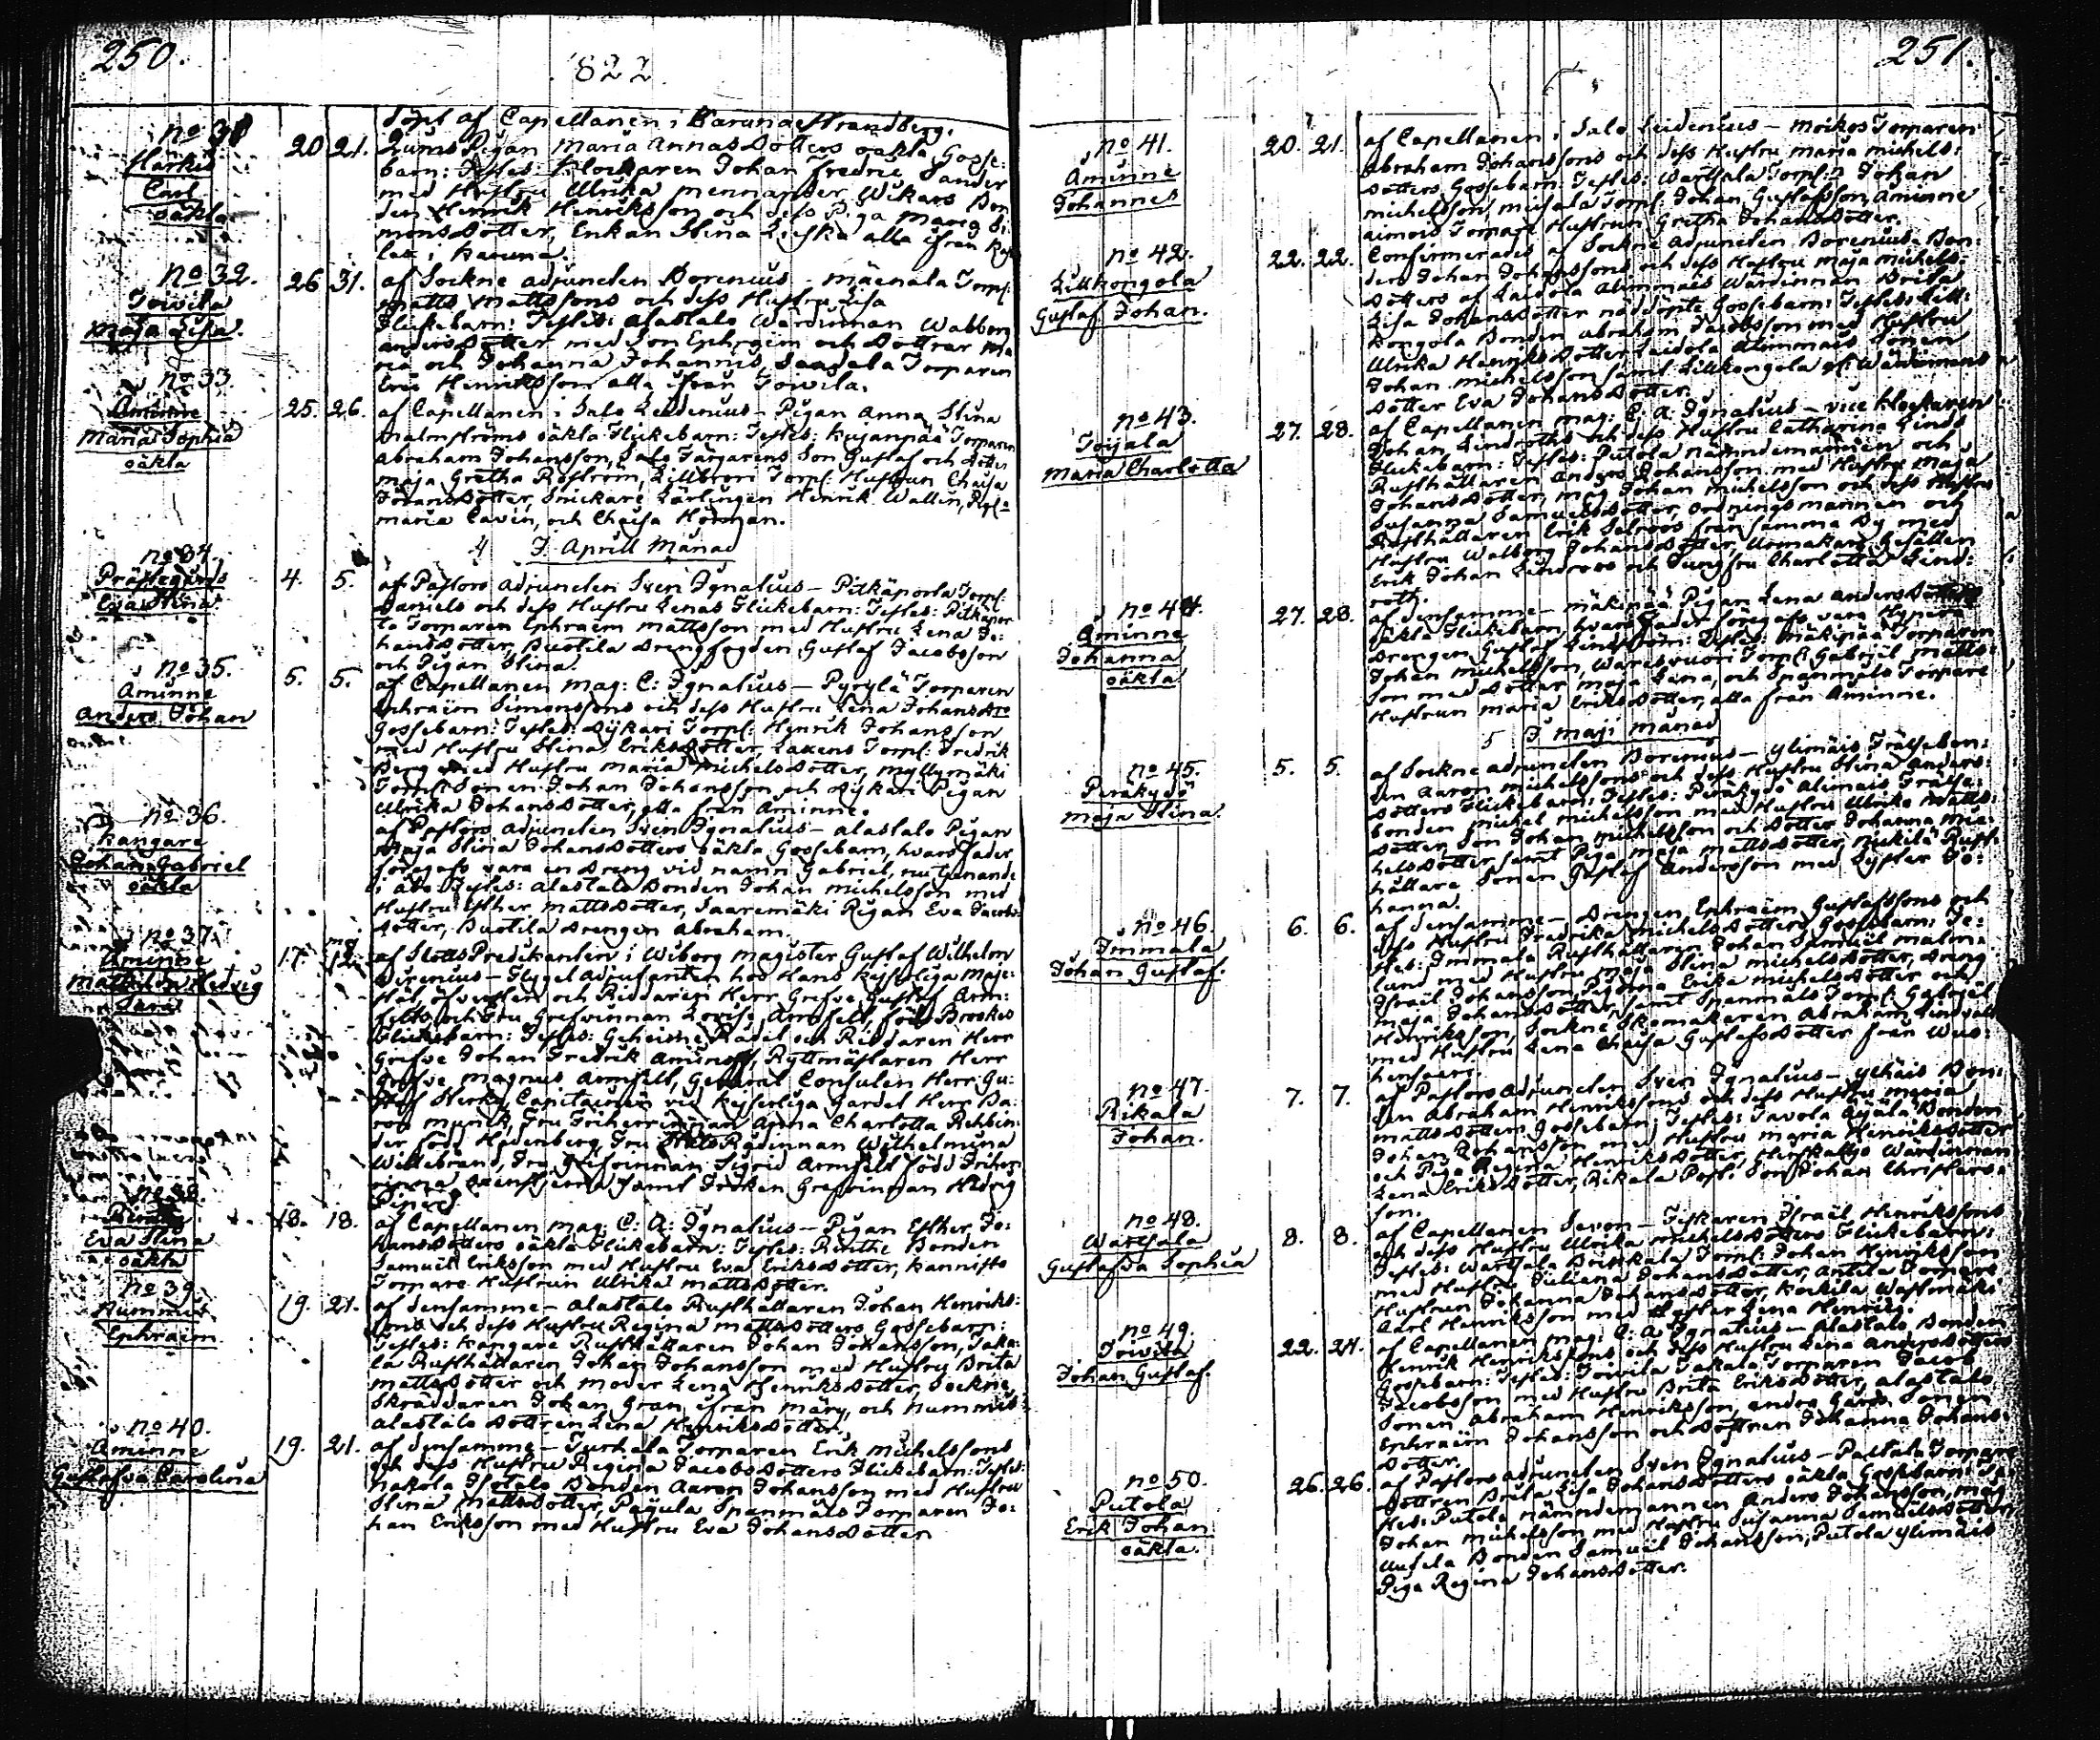 250.
1822
Döpt af Capellanen i Karuna Strandberg.
no 31
Harkis
Carl
oäkta
20 21.
Pigan Maria Annas Dotters oäkta Gosse:
barn: Testes: Klockaren Johan Fredric Sander
med Hustru Ulrika Mennander, Wikars Bon
den Henrik Henriksson och dess Piga Maria Si
mons Dotter, Enkan Stina alla ifrån
i Karuna.
no 32.
Toivila
Maja Lisa.
26 31.
af Sockne adjuncten Borenius - Mäenala Torp:
Matts Mattssons och dess Hustru Lisa
Flickebarn: Testes: Alastalo Wärdinnan Walborg
Anders Dotter med Son Ephraim och Dottrar Ma
ria och Johanna Johannis, Saarela Torparen
Eric Henriksson alla ifrån Toivila.
no 33.
Aminne
Maria Sophia
oäkta
25. 26.
af Capellanen i Salo Leidenius - Pigan Anna Stina
Malmströms oäkta Flickebarn: Testes: Kujanpää Torparen
Abraham Johansson, Salo Färgarens Son Gustaf och Dotter
Maja Gretha Roström, Torp: Hustrun Chaisa
Johans Dotter, Snickare Lärlingen Henrik Wallin, Pig:
Maria Cavén, och Chaisa Hörman.
4 I Aprill Månad
no 34.
Prästegårds
Eva Stina
4. 5.
af Pastors Adjuncten Sven Ignatius - Pitkäporta Torp:
Daniels och dess Hustru Lenas Flickebarn: Testes: Pitkäpor
ta Torparen Ephraim Mattsson med Hustru Lena Jo:
hans Dotter, Buotila Drengfogden Gustaf Jacobsson
och Pigan Stina.
no 35.
Aminne
Anders Johan
5. 5.
af Capellanen Mag: C: Ignatius - Pyrylä Torparen
Ephraim Simonssons och dess Hustru Lena Johans Dr
Gossebarn: Testes: Dykari Torp: Henrik Johansson
med Hustru Stina Eriks Dotter, Laxens Torp: Fredrik
Berg med Hustru Maria Michels Dotter, Myllymäki
Torp: Sonen Johan Johansson och Dykari Pigan
Ulrika Johans Dotter, alla från Aminne.
no 36.
Kangare
Johan Gabriel
oäkta
af Pastors Adjuncten Sven Ignatius - Alastalo Pigan
Maja Stina Johans Dotters oäkta Gossebarn, hvars Fader
föregafs vara en Dreng vid namn Gabriel, nu tjenande
i Åbo Testes: Alastalo Bonden Johan Michelsson med
Hustru Esther Matts Dotter, Saaremäki Pigan Eva Jacobs
Dotter, Buotila Drengen Abraham.
no 37.
Aminne
Mathilda Hedvig
Sara
17. maj 12.
af Slotts Predikanten i Wiborg Magister Gustaf Wilhelm
Sirenius - Flygel Adjutanten hos Hans Kejserliga Maje:
stät, Öfversten och Riddaren Herr Grefve Gustaf Arm:
felts och Fru Grefvinnan Lovise Armfelt, född Brookes
Flickebarn: Testes: Geheime Rådet och Riddaren Herr
Grefve Johan Fredrik Aminoff, Ryttmästaren Herr
Grefve Magnus Armfelt, General Consulen Herr Gu:
staf Sterky, Capitainen vid Kejserliga Gardet Herr Ba:
ron Munck, Fru Friherrinnan Anna Charlotta Rehbin:
der född Hedenberg, Fru Stats Rådinnan Wilhelmina
Willebrand, Fru Grefvinnan Sigrid Armfelt född Friherr
rinna Oxenstjerna samt Fröken Grefvinnan Hedvig
Piper.
no 38.
Rinthe
Eva Stina
oäkta
18. 18.
af Capellanen Mag: C: A: Ignatius - Pigan Esther Jo:
hans Dotters oäkta Flickebarn: Testes: Rinthe Bonden
Samuel Eriksson med Hustru Eva Eriks Dotter, Kannisto
Torpare Hustrun Ulrika Matts Dotter.
no 39.
Nummis
Ephraim
19. 21.
af Densamme - Alastalo Rusthållaren Johan Henriks:
sons och dess Hustru Regina Matts Dotters Gossebarn:
Testes: Kangare Rusthållaren Johan Johansson, Taka:
la Rusthållaren Johan Johansson med Hustru Brita
Matts Dotter och Moder Lena Henriks Dotter, Sockne
Skräddaren Johan Gran ifrån Märy, och Nummis
Alastalo Dottren Lena Henriks Dotter.
no 40.
Aminne
Gustafva Carolina
19. 21.
af Densamme - Turkela Torparen Erik Michelssons
och dess Hustru Regina Jacobs Dotters Flickebarn: Testes:
Hakola Isotalo Bonden Aaron Johansson med Hustru
Stina Matts Dotter, Pajula Spanmåls Torparen Jo:
han Eriksson med Hustru Eva Johans Dotter
251.
no 41.
Aminne
Johannes
20. 21.
af Capellanen i Salo Leidenius - Moikos Torparen
Abraham Johanssons och dess Hustru Maria Michels:
Dotters Gossebarn: Testes: Warttala Torp:n Johan
Michelsson, Torp: Johan Gustafsson, Aminne
Torpare Hustrun Gretha Johans Dotter.
no 42.
Lillkongola
Gustaf Johan.
22. 22.
Confirmerades af Sockne Adjuncten Borenius Bon:
den Johan Johanssons och dess Hustru Maja Michels:
Dotters af Laidola Alimmais Wärdinnan Brita
Lisa Johans Dotter nöddöpte Gossebarn: Testes: Lill:
kongola Bonden Abraham Jacobsson med Hustru
Ulrika Henriks Dotter, Laidola Alimmais Sonen
Johan Michelsson samt Lillkongola Wärdinnans
Dotter Eva Johans Dotter.
no 43.
Toijala
Maria Charlotta
27. 28.
af Capellanen Mag: C: A: Ignatius - vice Klockaren
Johan Lindroths och dess Hustru Catharina Linds
Flickebarn: Testes: Putola nämndemannen och
Rusthållaren Anders Johansson med Hustru Maja
Johans Dotter, Mag Johan Michelsson och dess Hustru
Susanna Samuels Dotter, Ordningsmannen och
Rusthållaren Erik Selroos från samma By med
Hustru Walborg Johans Dotter, Urmakare Gesällen
Erik Johan Lindroos och Jungfru Charlotta Lind:
roth.
no 44.
Aminne
Johanna
oäkta
27. 28.
af Densamme - Mäkipää Pigan Lena Anders Dotters
oäkta Flickebarn hvars Fader föregafs vara
Drengen Gustaf Lindström: Testes: Mäkipää Torparen
Johan Michelsson, Waresvuori Torp: Gabriel Matts:
son med Dotter Maja Lena, och Spanmåls Torpare
Hustrun Maria Eriks Dotter, alla från Aminne.
5 I Maji Månad
no 45.
Peräkylä
Maja Stina.
5. 5.
af Sockne Adjuncten Borenius - Ylimäis Frälsebon:
den Aaron Michelssons och dess Hustru Stina Anders:
Dotters Flickebarn: Testes: Peräkylä Alimais Frälse:
bonden Michel Michelsson med Hustru Ulrika Matts:
Dotter Son Johan Michelsson och Dotter Johanna Mic:
hels Dotter samt Piga Maja Matts Dotter, Mickilä Rust:
hållare Sonen Gustaf Andersson med Syster Jo:
hanna.
no 46.
Immala
Johan Gustaf.
6. 6.
af Densamme - Drengen Ephraim Gustafssons och
dess Hustru Fredrika Michels Dotters Gossebarn: Te:
stes: Immala Rusthållaren Johan Samuel Malm:
lund med Hustru Maja Stina Michels Dotter, Dreng
Israel Johansson, Pigorna Erika Michels Dotter och
Maja Johans Dotter, samt Spanmåls Torp: Gabriel
Henriksson, Sockne Skomakaren Abraham Lindvall
med Hustru Lena Chaisa Gustafs Dotter från Wus:
kensaari.
no 47.
Rikala
Johan.
7. 7.
af Pastors Adjuncten Sven Ignatius - Ylhäis Bon:
den Abraham Henrikssons och dess Hustru Maria
Matts Dotters Gossebarn: Testes: Tavola Äijälä Bonden
Johan Johansson med Hustru Maria Henriks Dotter
och Piga Regina Henriks Dotter, Wärdinnan
Lena Eriks Dotter, Rikala Post: Son Johan Christiers:
son.
no 48.
Warttala
Gustafva Sophia
8. 8.
af Capellanen Saxon - Fiskaren Israel Henrikssons
och dess Hustru Ulrika Michels Dotters Flickebarn:
Testes: Warttala Torp: Johan Henriksson
med Hustru Juliana Johans Dotter, Antila Torpare
Hustrun Johanna Johans Dotter, Kockila Wästmäki
Carl Henriksson med Syster Lena Henriks.
no 49.
Toivila
Johan Gustaf.
22. 24.
af Capellanen Mag: C: A: Ignatius - Alastalo Bonden
Henrik Henrikssons och dess Hustru Lena Anders Dotters
Gossebarn: Testes: Toivila Jakala Torparen Jacob
Jacobsson med Hustru Brita Eriks Dotter, Alastalo
Sonen Abraham Henriksson, Gårds Sonen
Ephraim Johansson och Dottren Johanna Johans:
Dotter.
no 50.
Putola
Erik Johan
oäkta.
26. 26.
af Pastors Adjuncten Sven Ignatius - Torpare
Dottren Brita Lisa Johans Dotters oäkta Gossebarn: Te:
stes: Putola nämndemannen Anders Johansson, Mag
Johan Michelsson med Hustru Susanna Samuels Dotter,
Bonden Samuel Johansson, Putola Ylimäis
Piga Regina Johans Dotter.